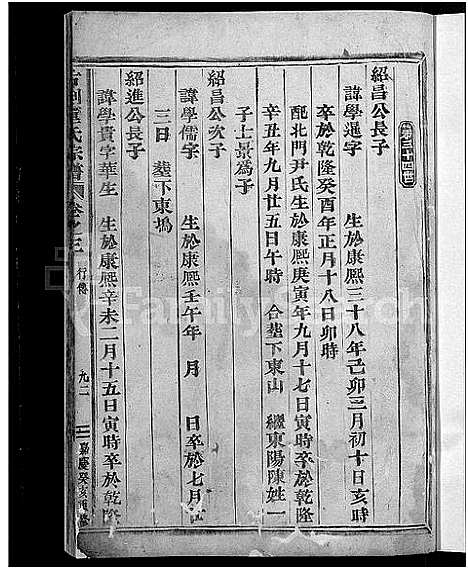 紹昌公長子
諱學暹字 生於康熙三十八年己卯三月初十日亥時
卒於乾隆癸酉年正月十八日卯時
配北門尹氏生於康熙庚寅年九月十七日寅時卒於乾隆
辛丑年九月廿五日午時 合塟下東山 繼東陽陳姓一
子士景爲子
紹昌公次子
諱學儒字 生於康熙壬午年 月 日卒於七月廿
三日 塟下東塢
紹進公長子
諱學貴字華生 生於康熙辛未二月十五日寅時卒於乾隆
氏宗譜 卷之三 行傳 九二 嘉慶癸亥重修
FamilySearch